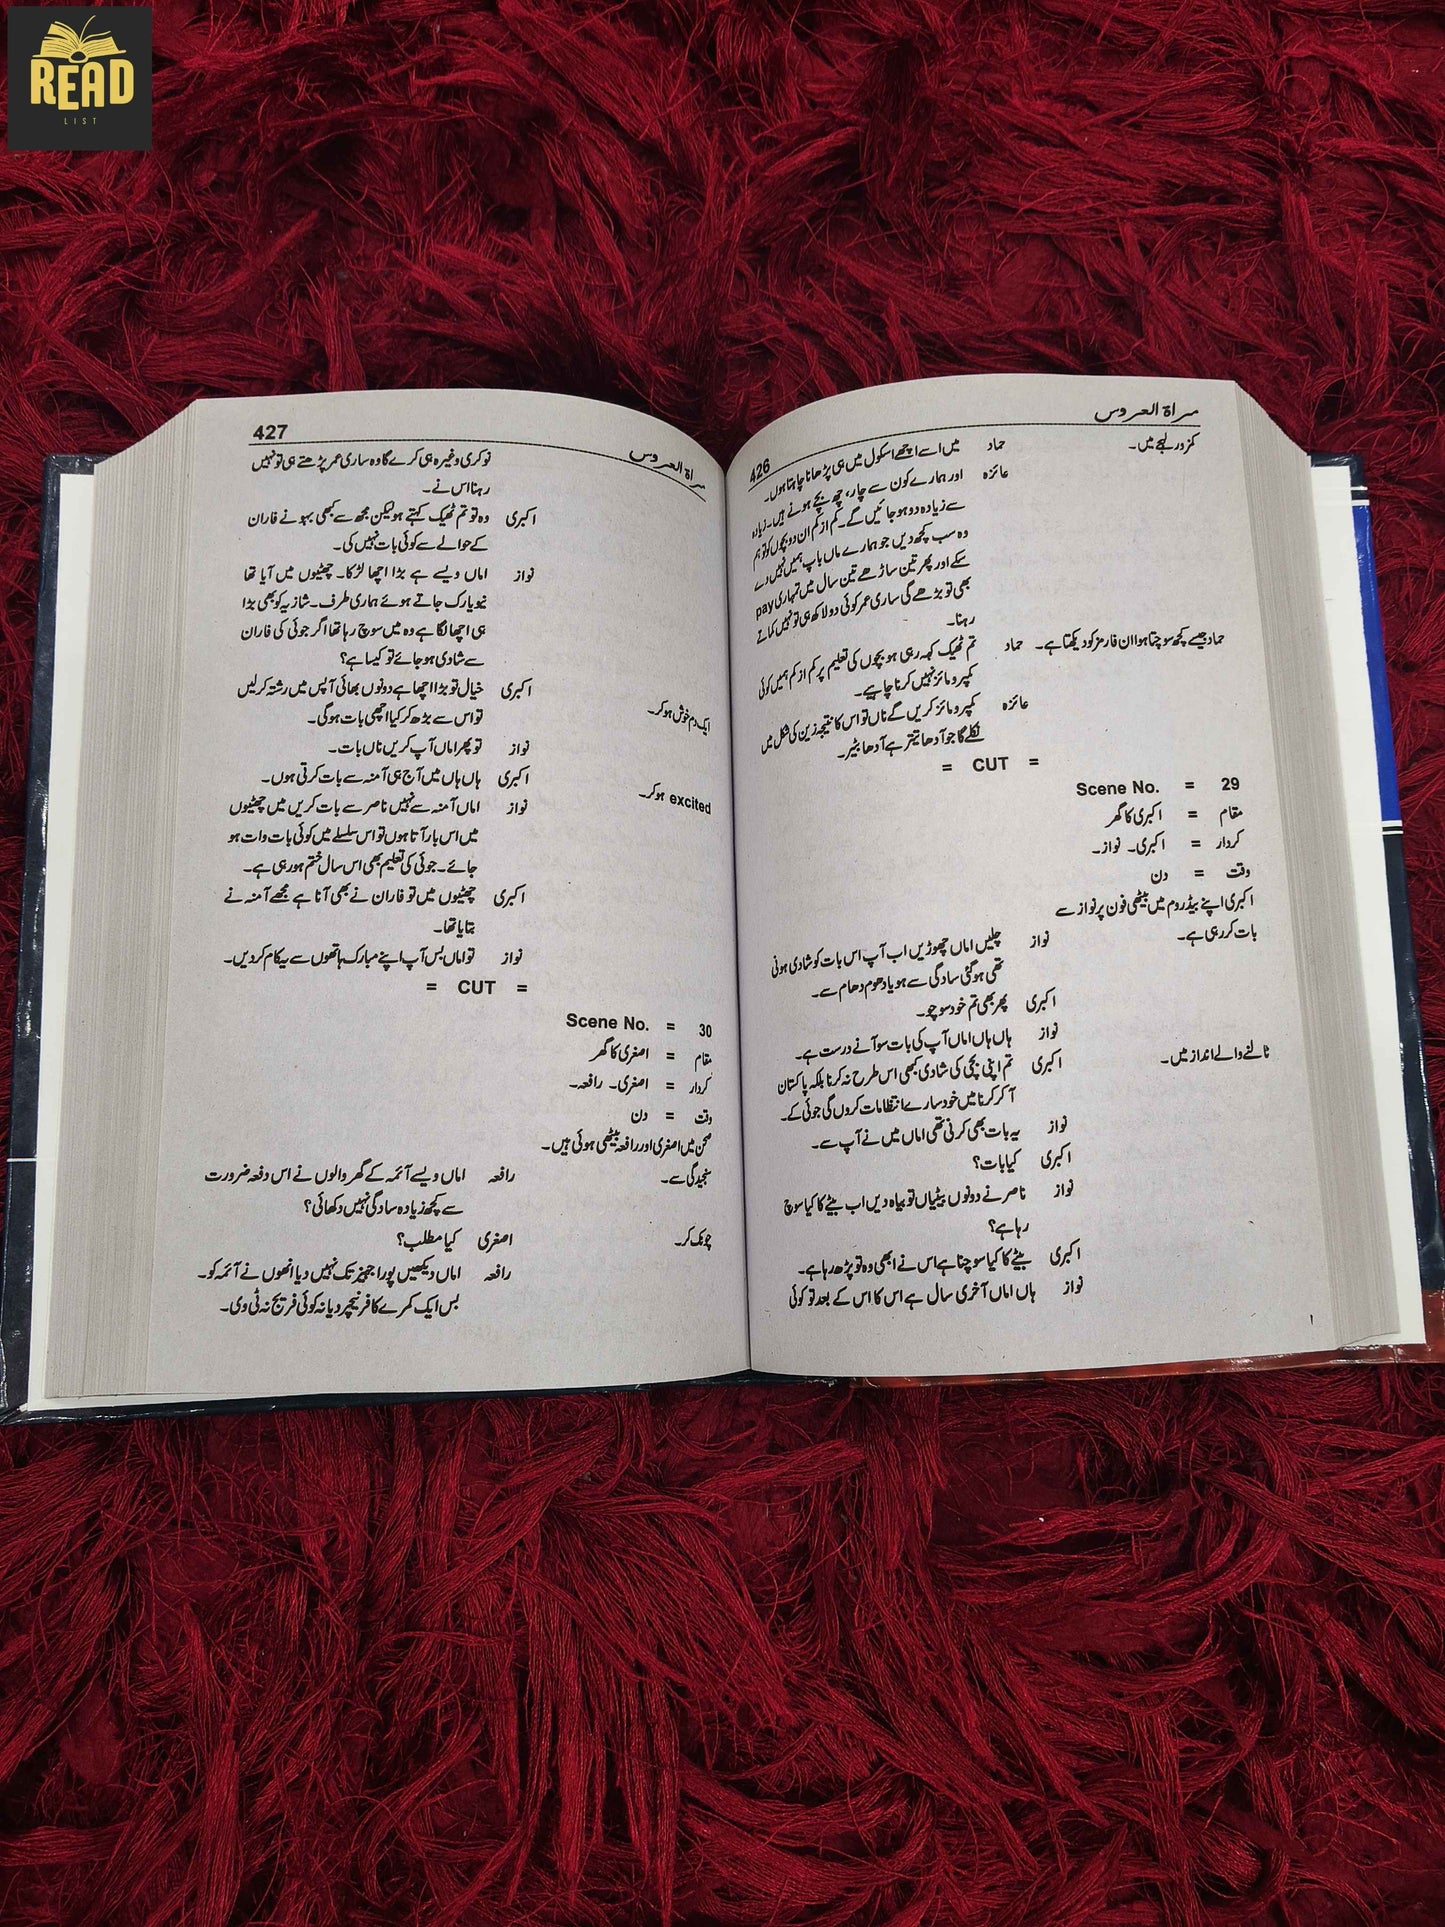 READ
LIST
مراۃ العروس
426
کمزور لہجے میں۔ حماد میں اسے اچھے اسکول میں ہی پڑھانا چاہتا ہوں۔
عائزہ اور ہمارے کون سے چار، چھ بچے ہونے ہیں۔ زیادہ
سے زیادہ دو ہو جائیں گے۔ کم از کم ان دو بچوں کو تو ہم
وہ سب کچھ دیں جو ہمارے ماں باپ ہمیں نہیں دے
سکے اور پھر تین ساڑھے تین سال میں تمہاری pay
بھی تو بڑھے گی ساری عمر کوئی دو لاکھ ہی تو نہیں کماتے
رہنا۔
حماد جیسے کچھ سوچتا ہوا ان فارمز کو دیکھتا ہے۔ حماد تم ٹھیک کہہ رہی ہو بچوں کی تعلیم پر کم از کم ہمیں کوئی
کمپرومائز نہیں کرنا چاہیے۔
عائزہ کمپرومائز کریں گے ناں تو اس کا نتیجہ زین کی شکل میں
نکلے گا جو آدھا تیتر ہے آدھا بٹیر۔
= CUT =
Scene No. = 29
مقام = اکبری کا گھر
کردار = اکبری۔ نواز۔
وقت = دن
اکبری اپنے بیڈروم میں بیٹھی فون پر نواز سے
بات کر رہی ہے۔ نواز چلیں اماں چھوڑیں اب آپ اس بات کو شادی ہونی
تھی ہو گئی سادگی سے ہو یا دھوم دھام سے۔
اکبری پھر بھی تم خود سوچو۔
ٹالنے والے انداز میں۔ نواز ہاں ہاں اماں آپ کی بات سو آنے درست ہے۔
اکبری تم اپنی بچی کی شادی کبھی اس طرح نہ کرنا بلکہ پاکستان
آ کر کرنا میں خود سارے انتظامات کروں گی جوئی کے۔
نواز یہ بات بھی کرنی تھی اماں میں نے آپ سے۔
اکبری کیا بات؟
نواز ناصر نے دونوں بیٹیاں تو بیاہ دیں اب بیٹے کا کیا سوچ
رہا ہے؟
اکبری بیٹے کا کیا سوچنا ہے اس نے ابھی وہ تو پڑھ رہا ہے۔
نواز ہاں اماں آخری سال ہے اس کا اس کے بعد تو کوئی
مراۃ العروس
427
نوکری وغیرہ ہی کرے گا وہ ساری عمر پڑھتے ہی تو نہیں
رہنا اس نے۔
اکبری وہ تو تم ٹھیک کہتے ہو لیکن مجھ سے کبھی بہو نے فاران
کے حوالے سے کوئی بات نہیں کی۔
نواز اماں ویسے ہے بڑا اچھا لڑکا۔ چھٹیوں میں آیا تھا
نیویارک جاتے ہوئے ہماری طرف۔ شازیہ کو بھی بڑا
ہی اچھا لگا ہے وہ میں سوچ رہا تھا اگر جوئی کی فاران
سے شادی ہو جائے تو کیسا ہے؟
ایک دم خوش ہو کر۔ اکبری خیال تو بڑا اچھا ہے دونوں بھائی آپس میں رشتہ کر لیں
تو اس سے بڑھ کر کیا اچھی بات ہو گی۔
نواز تو پھر اماں آپ کریں ناں بات۔
excited ہو کر۔ اکبری ہاں ہاں میں آج ہی آمنہ سے بات کرتی ہوں۔
نواز اماں آمنہ سے نہیں ناصر سے بات کریں میں چھٹیوں
میں اس بار آتا ہوں تو اس سلسلے میں کوئی بات وات ہو
جائے۔ جوئی کی تعلیم بھی اس سال ختم ہو رہی ہے۔
اکبری چھٹیوں میں تو فاران نے بھی آنا ہے مجھے آمنہ نے
بتایا تھا۔
نواز تو اماں بس آپ اپنے مبارک ہاتھوں سے یہ کام کر دیں۔
= CUT =
Scene No. = 30
مقام = اصغری کا گھر
کردار = اصغری۔ رافعہ۔
وقت = دن
صحن میں اصغری اور رافعہ بیٹھی ہوئی ہیں۔
سنجیدگی سے۔ رافعہ اماں ویسے آئمہ کے گھر والوں نے اس دفعہ ضرورت
سے کچھ زیادہ سادگی نہیں دکھائی؟
چونک کر۔ اصغری کیا مطلب؟
رافعہ اماں دیکھیں پورا جہیز تک نہیں دیا انھوں نے آئمہ کو۔
بس ایک کمرے کا فرنیچر دیا نہ کوئی فریج نہ ٹی وی۔